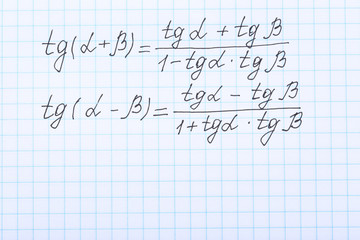 tg(α+β)=(tgα + tgβ)/(1-tgα · tgβ)
tg(α-β)=(tgα - tgβ)/(1+tgα · tgβ)